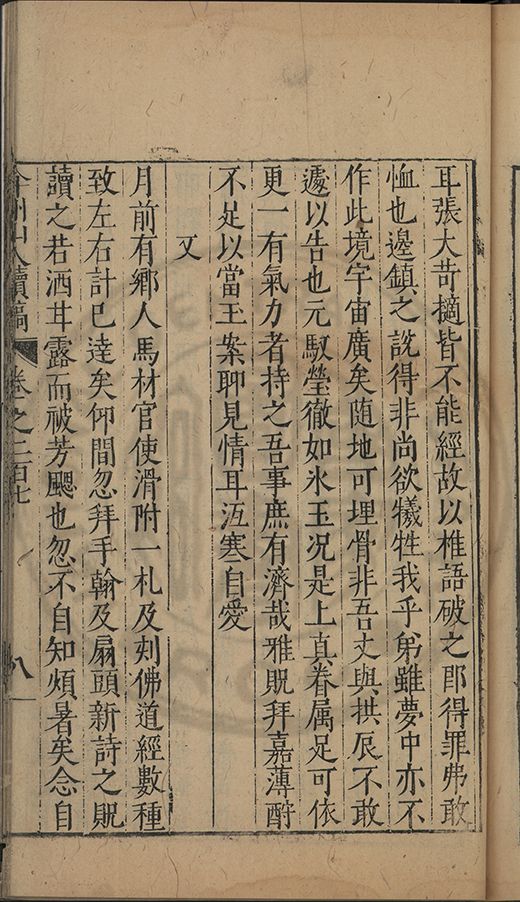 耳張大苛擿皆不能經故以椎語破之即得罪弗敢
恤也邊鎮之說得非尚欲犧牲我乎弟雖夢中亦不
作此境宇宙廣矣隨地可埋骨非吾丈與拱辰不敢
遽以告也元馭瑩徹如氷玉况是上真眷属足可依
更一有氣力者持之吾事庶有濟哉雅貺拜嘉薄酧
不足以當玉案聊見情耳沍寒自愛
又
月前有鄉人馬材官使滑附一札及刻佛道經數種
致左右計已達矣仰間忽拜手翰及扇頭新詩之貺
讀之若洒甘露而被芳颸也忽不自知煩暑矣念自
弇州山人續稿
卷之二百七
八